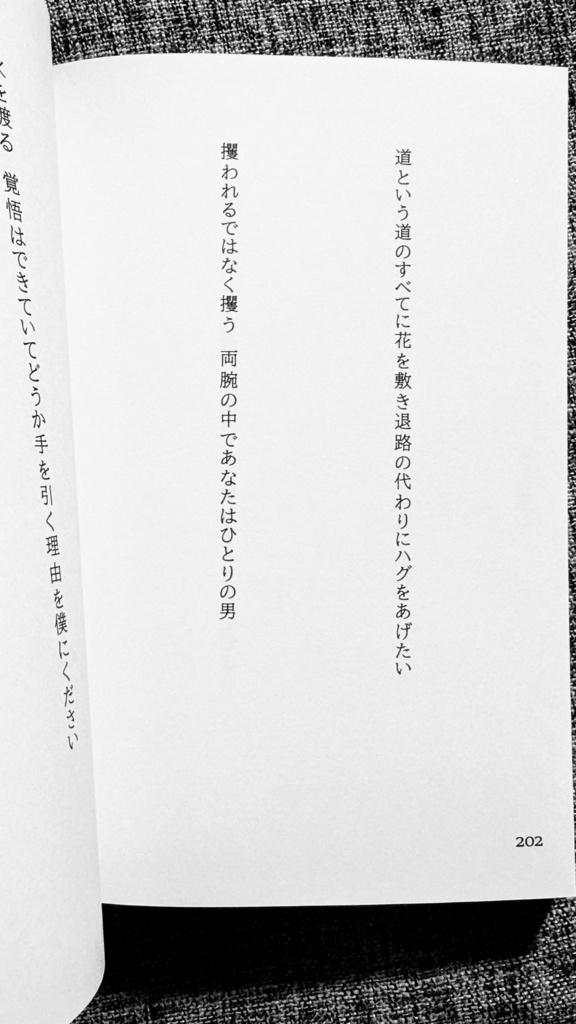 道という道のすべてに花を敷き退路の代わりにハグをあげたい
攫われるではなく攫う　両腕の中であなたはひとりの男
202
を渡る　覚悟はできていてどうか手を引く理由を僕にください